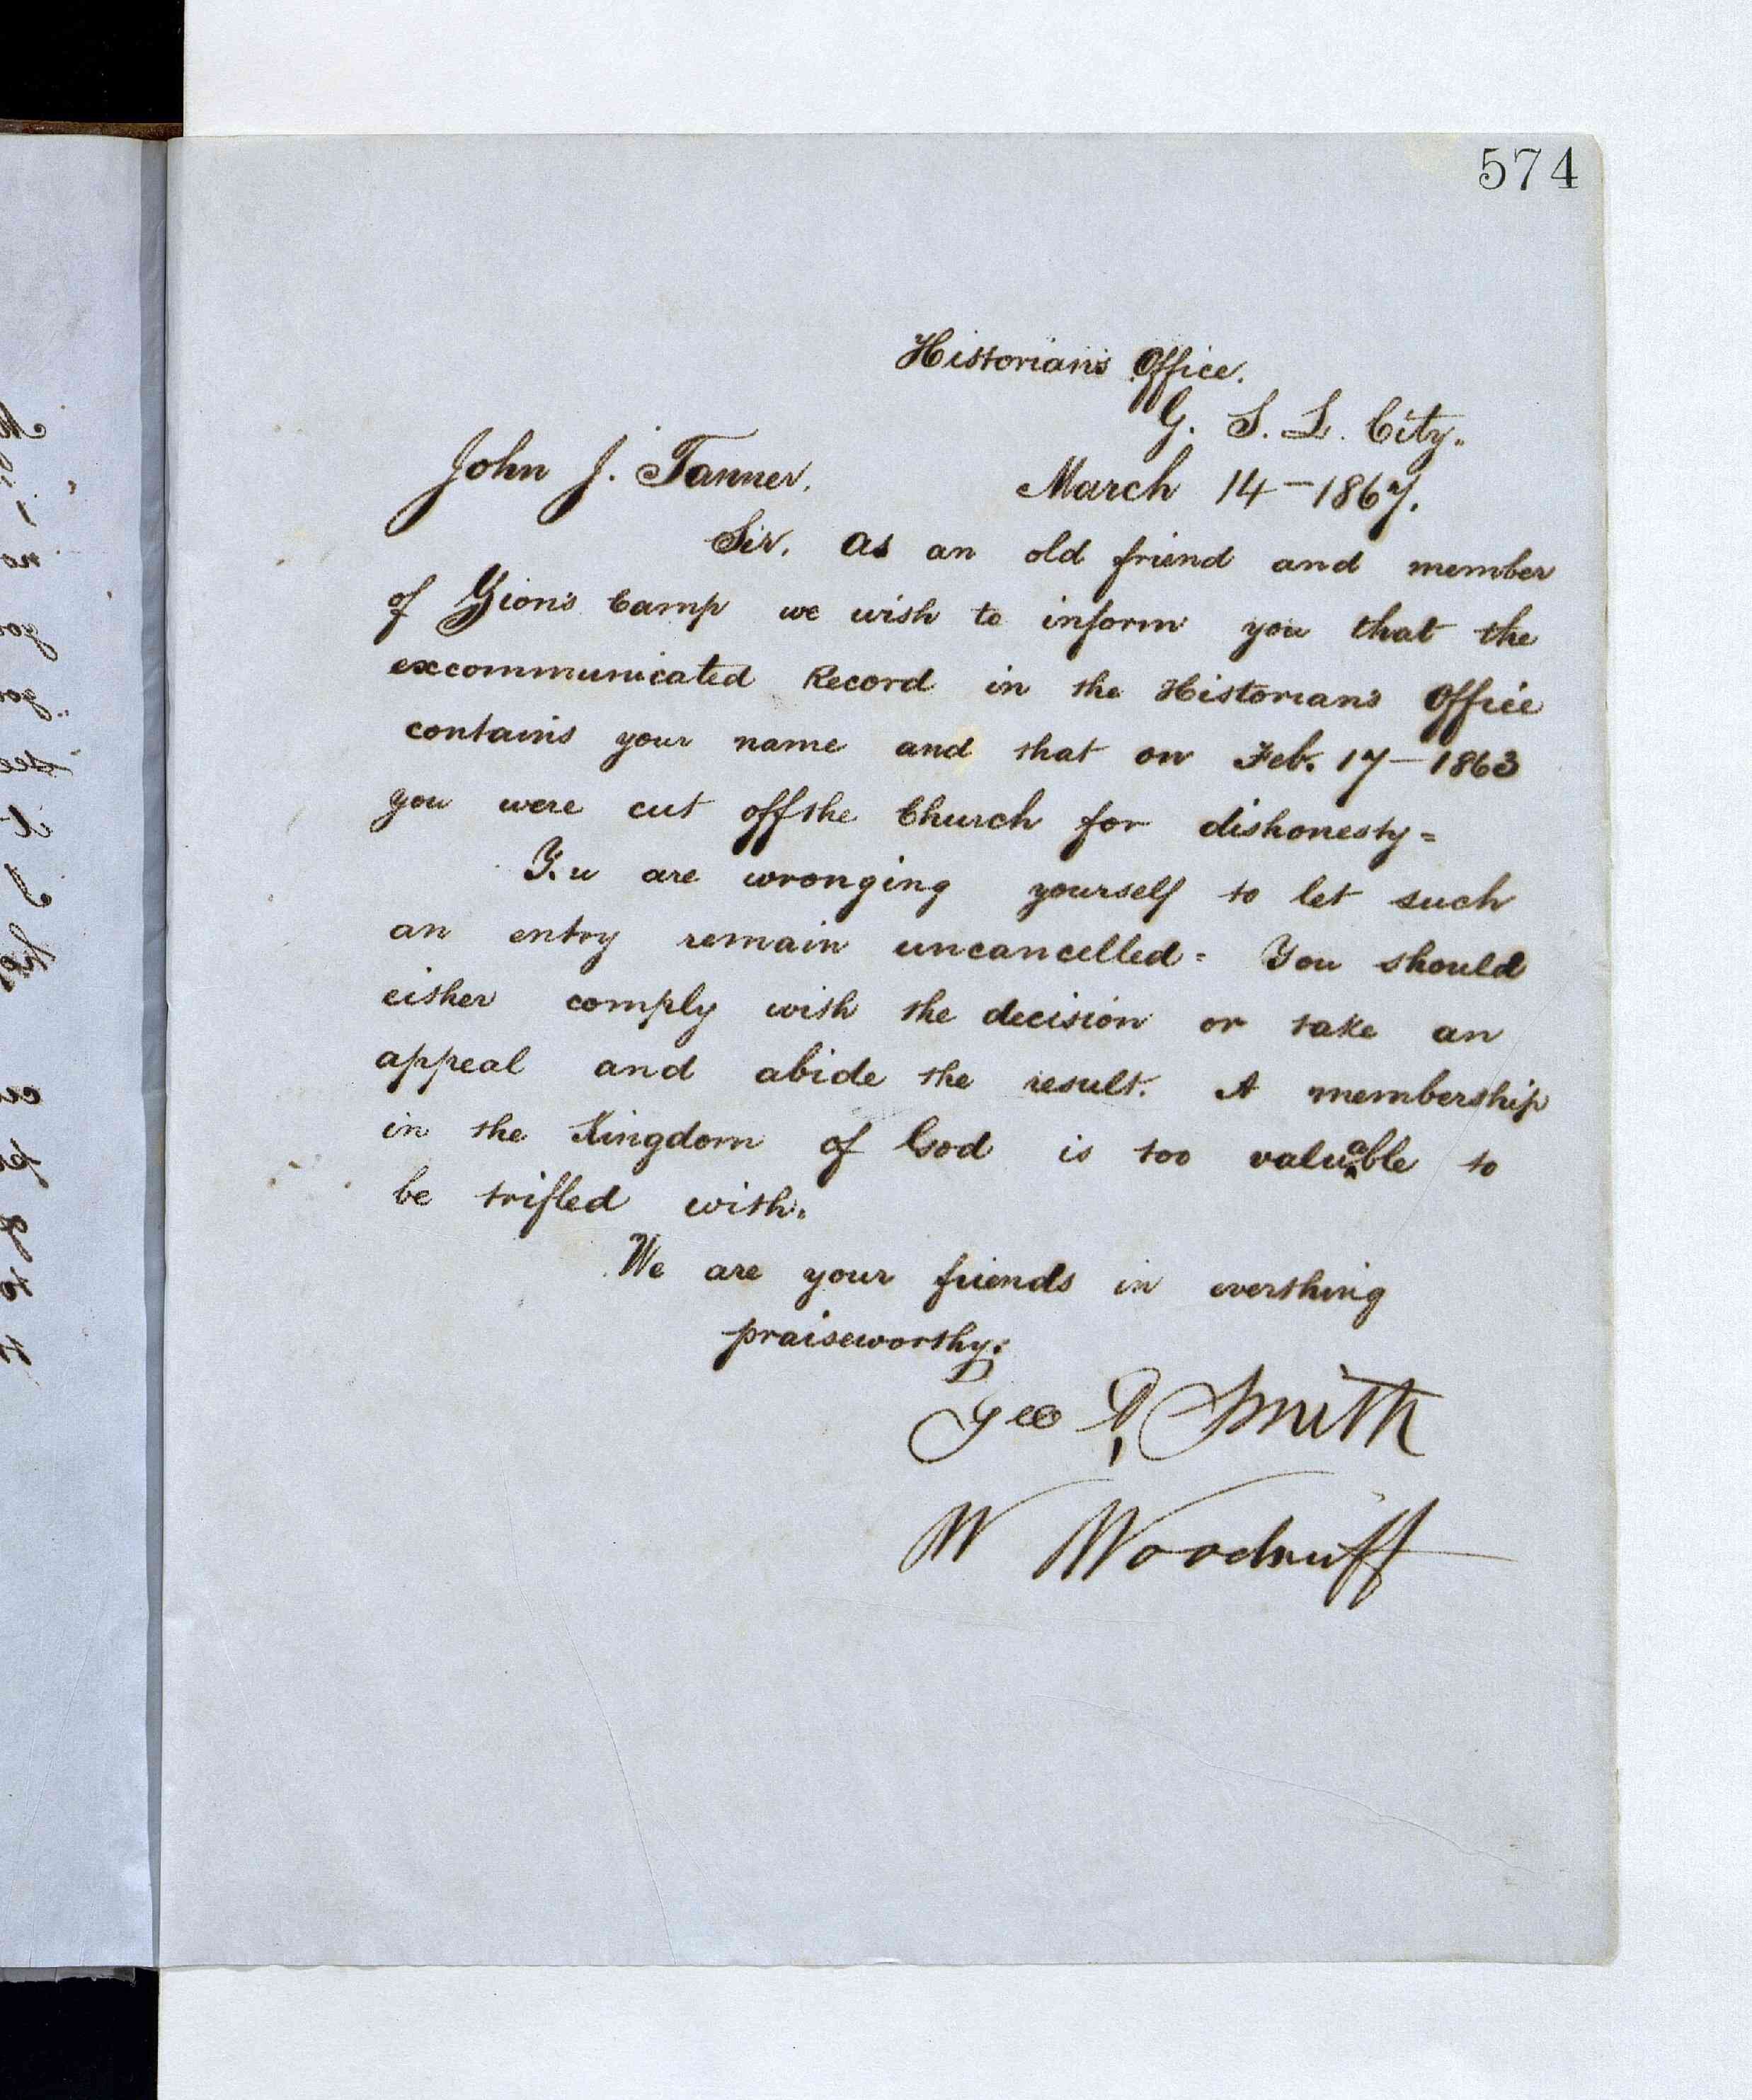 574
Historian's Office.
G. S. L. City.
John J. Tanner. March 14 – 1867.
Sir. As an old friend and member
of Zion's Camp we wish to inform you that the
excommunicated Record in the Historian's Office
contains your name and that on Feb. 17 – 1863
you were cut off the Church for dishonesty =
You are wronging yourself to let such
an entry remain uncancelled = You should
either comply with the decision or take an
appeal and abide the result. A membership
in the Kingdom of God is too valuable to
be trifled with.
We are your friends in everthing
praiseworthy.
Geo A. Smith
W Woodruff